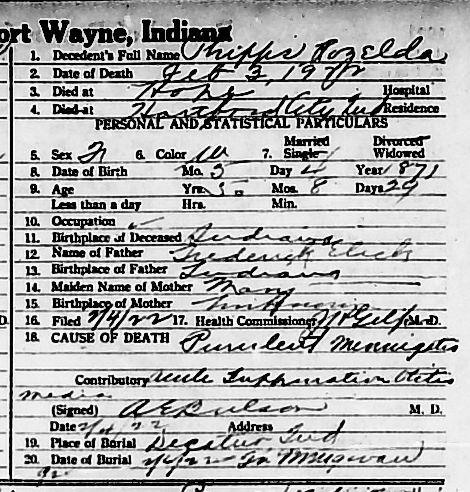 ort Wayne, Indiana
1. Decedent's Full Name Phipps Rozelda
2. Date of Death Feb 3, 1922
3. Died at Hope Hospital
4. Died at Hartford City Ind Residence
PERSONAL AND STATISTICAL PARTICULARS
5. Sex F 6. Color W 7. Married Single Divorced Widowed
8. Date of Birth Mo. 5 Day 4 Year 1871
9. Age Yrs. 50 Mos. 8 Days 29
Less than a day Hrs. Min.
10. Occupation
11. Birthplace of Deceased Indiana
12. Name of Father Frederick
13. Birthplace of Father Indiana
14. Maiden Name of Mother Mary
15. Birthplace of Mother Unknown
16. Filed 2/4/22 17. Health Commissioner M.D.
18. CAUSE OF DEATH Purulent Meningitis
Contributory Acute Suppuration Otitis
media
(Signed) A E Bulson M. D.
Date 2/4/22 Address
19. Place of Burial Decatur Ind
20. Date of Burial 2/6/22